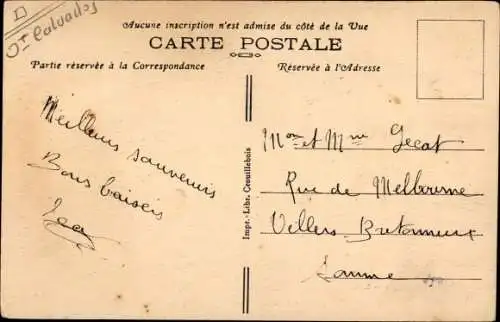 Calvados
Aucune inscription n'est admise du côté de la Vue
CARTE POSTALE
Partie réservée à la Correspondance
Réservée à l'Adresse
Meilleurs souvenirs
Bons baisers
Impr.-Libr. Creuillebois
Mon et Mme
Rue de Melbourne
Villers Bretonneux
Somme